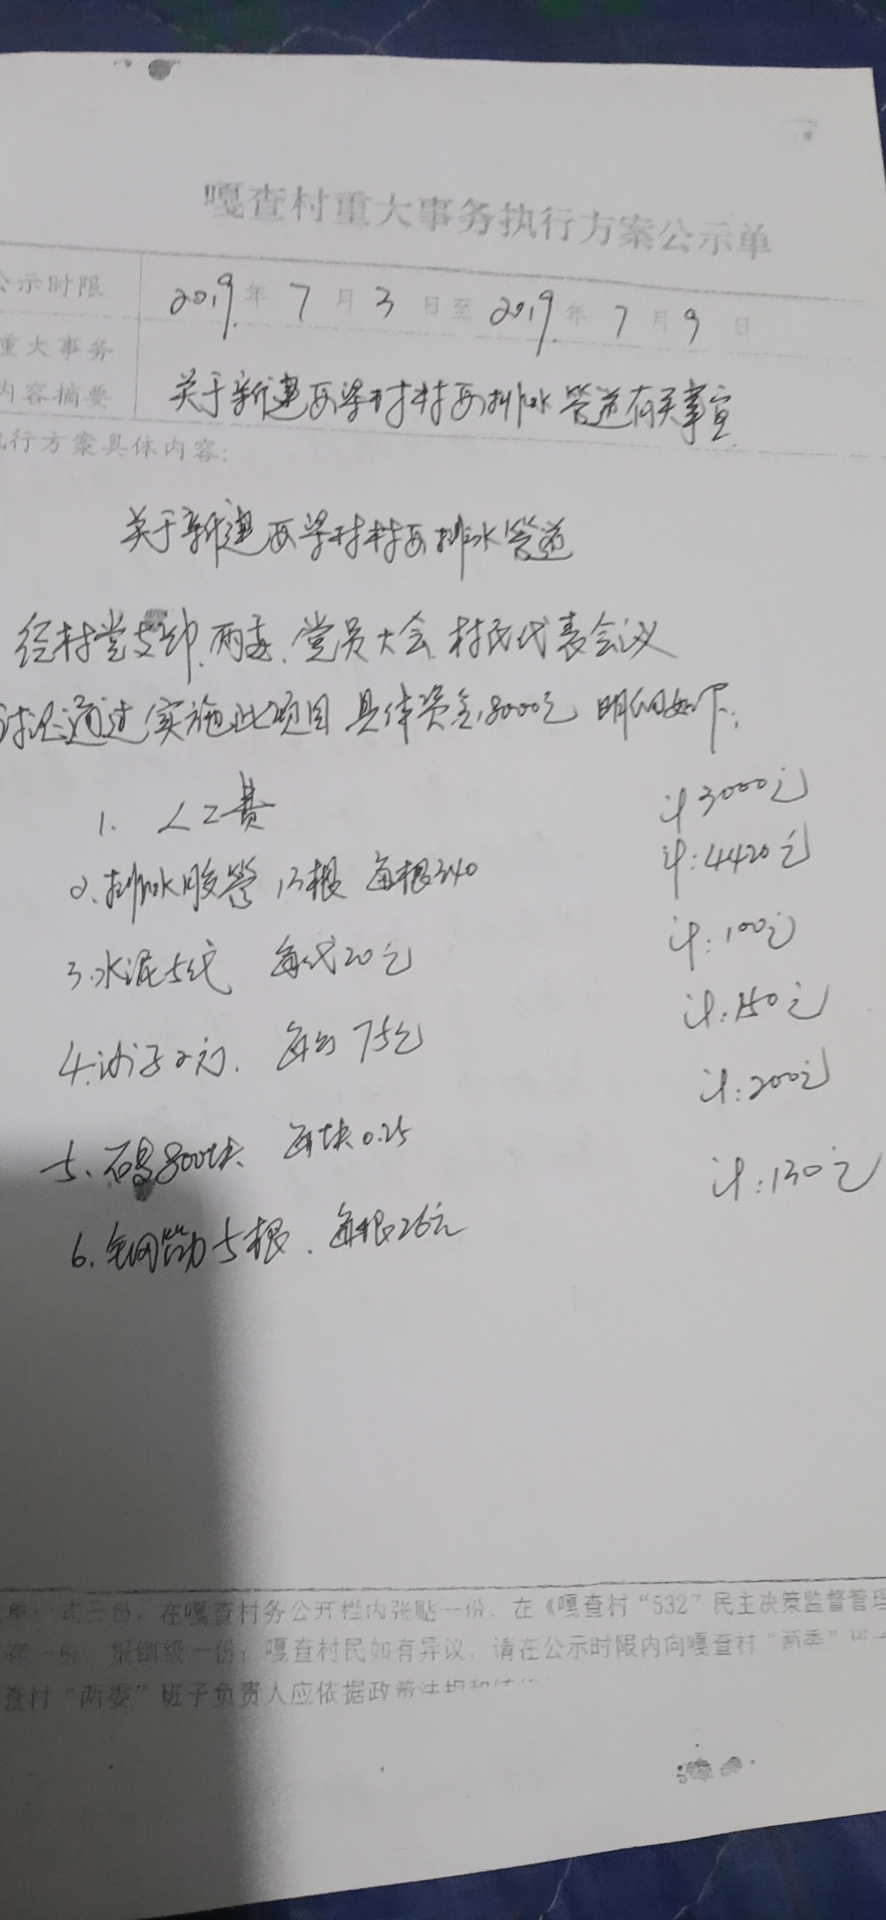 嘎查村重大事务执行方案公示单
公示时限 2019年7月3日至2019年7月9日
重大事务
内容摘要 关于新建西梁村村西排水管道有关事宜
执行方案具体内容:
关于新建西梁村村西排水管道
经村党支部、两委、党员大会、村民代表会议
讨论通过实施此项目 具体资金8000元 明细如下:
1. 人工费 计3000元
2. 排水胶管 13根 每根340 计:4420元
3. 水泥5代 每代20元 计:100元
4. 沙子2方. 每方75元 计:150元
5. 石号800块 每块0.25 计:200元
6. 钢筋5根. 每根26元 计:130元
单一式三份,在嘎查村务公开栏内张贴一份,在《嘎查村“532”民主决策监督管理
一份,报镇级一份;嘎查村民如有异议,请在公示时限内向嘎查村“两委”班子
查村“两委”班子负责人应依据政策法规和